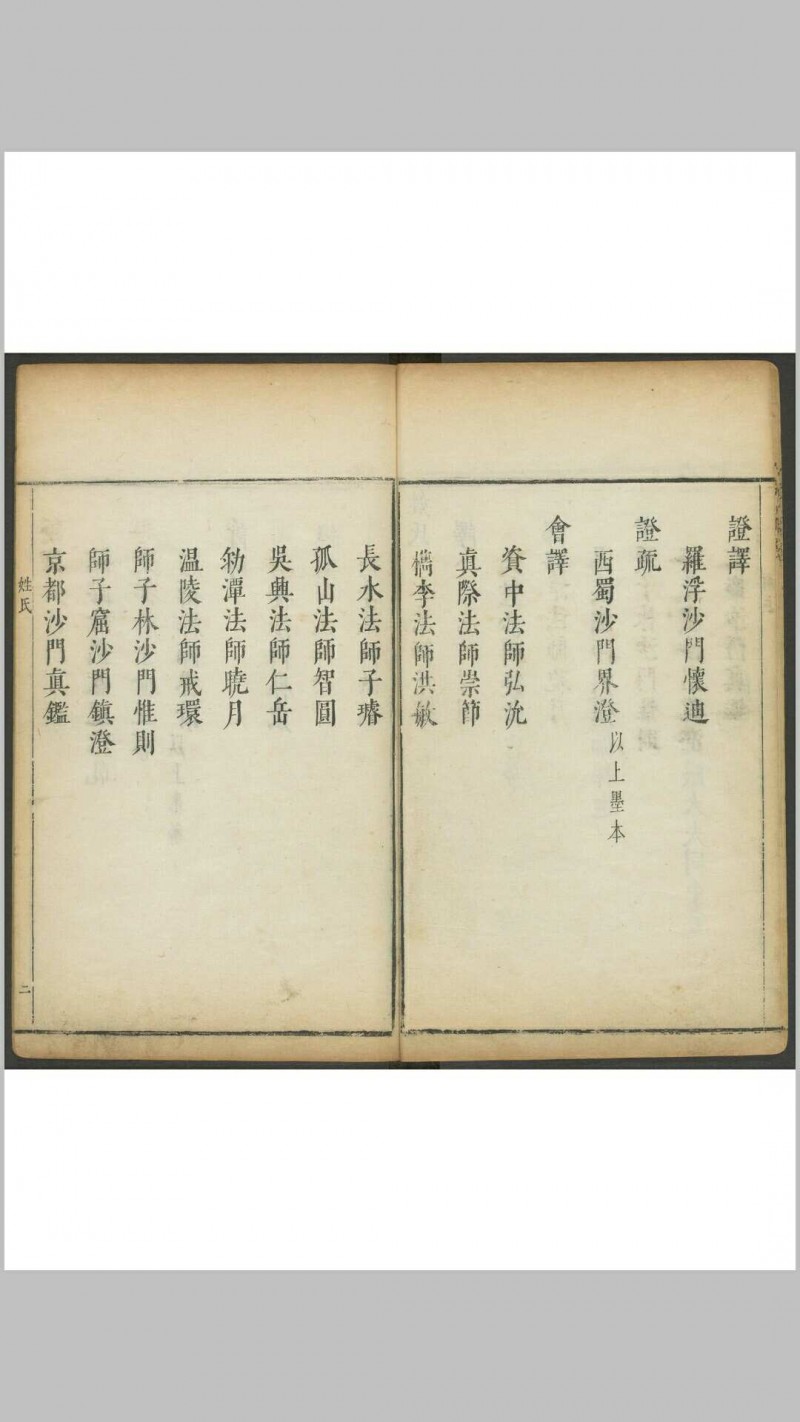 證譯
羅浮沙門懷迪
證疏
西蜀沙門界澄以上墨本
會譯
資中法師弘沇
真際法師崇節
檇李法師洪敏
長水法師子璿
孤山法師智圓
吳興法師仁岳
泐潭法師曉月
温陵法師戒環
師子林沙門惟則
師子窟沙門鎮澄
京都沙門真鑑
姓氏
二